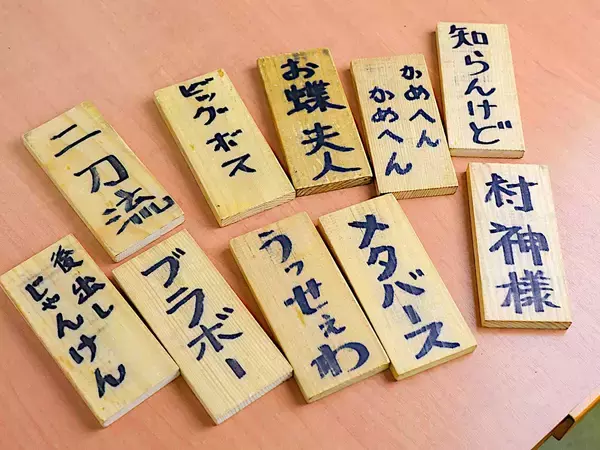 二刀流
ビッグボス
お蝶夫人
かめへん
かめへん
知らんけど
後出し
じゃんけん
ブラボー
うっせぇわ
メタバース
村神様